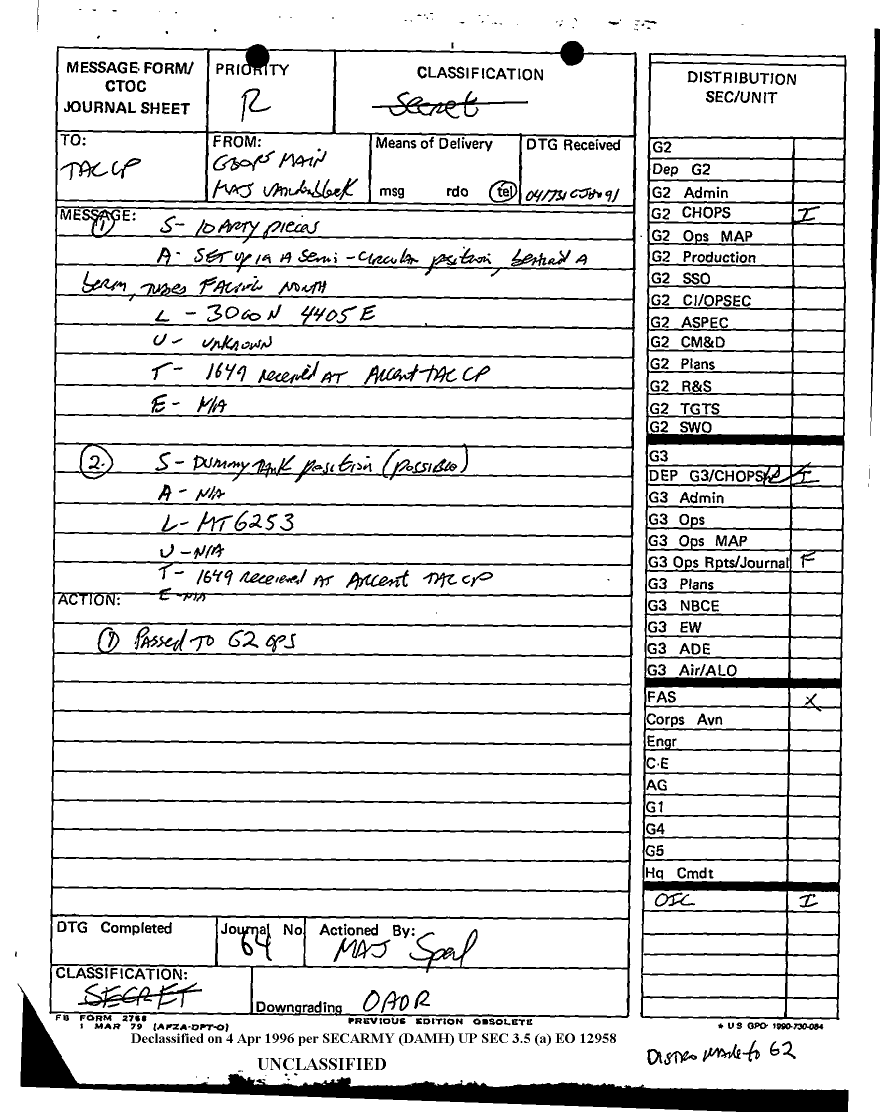 MESSAGE FORM/
CTOC
JOURNAL SHEET
PRIORITY
R
CLASSIFICATION
Secret
TO:
TAC CP
FROM:
G3OPS MAIN
MAJ Vandenbleek
Means of Delivery
msg rdo tel
DTG Received
MESSAGE:
① S- 10 ARTY pieces
A- SET up in A Semi-Circular position, behind A
berm, TUBES FACING NORTH
L - 3000N 4405E
U- UNKNOWN
T- 1649 received AT Arcent TAC CP
E- N/A
②. S- DUMMY TANK position (possible)
A- N/A
L- MT6253
U-N/A
T- 1649 received AT Arcent TAC CP
E-N/A
ACTION:
① Passed to G2 OPS
DTG Completed
Journal No
64
Actioned By:
MAJ
CLASSIFICATION:
SECRET
Downgrading OADR
FB FORM 2768
1 MAR 79 (AFZA-DPT-O)
PREVIOUS EDITION OBSOLETE
Declassified on 4 Apr 1996 per SECARMY (DAMH) UP SEC 3.5 (a) EO 12958
UNCLASSIFIED
DISTRIBUTION
SEC/UNIT
G2
Dep G2
G2 Admin
G2 CHOPS I
G2 Ops MAP
G2 Production
G2 SSO
G2 CI/OPSEC
G2 ASPEC
G2 CM&D
G2 Plans
G2 R&S
G2 TGTS
G2 SWO
G3
DEP G3/CHOPS I
G3 Admin
G3 Ops
G3 Ops MAP
G3 Ops Rpts/Journal F
G3 Plans
G3 NBCE
G3 EW
G3 ADE
G3 Air/ALO
FAS X
Corps Avn
Engr
C-E
AG
G1
G4
G5
Hq Cmdt
OIC I
★ U S GPO: 1990-730-084
Distro made to G2